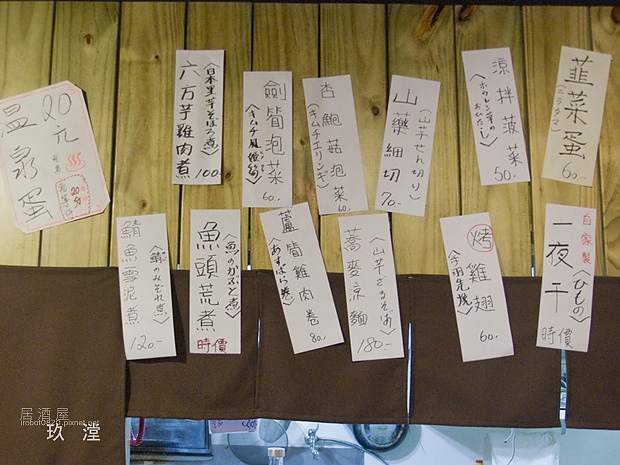 韮菜蛋
(ニラタマ)
60.-
涼拌菠菜
(ホウレン草のおひたし)
50.-
山藥細切
(山芋せん切り)
70.-
杏鮑菇泡菜
(キムチエリンギ)
60.-
劍筍泡菜
60.-
六方芋雞肉煮
(日本里芋そぼろ煮)
100.-
20元
溫泉蛋
自家製
一夜干
(ひもの)
時價
烤雞翅
(手羽先焼)
60.-
蕎麥涼麵
(山芋ざるそば)
180.-
蘆筍雞肉卷
(あすぱら巻)
80.-
魚頭荒煮
(魚のかぶと煮)
時價
鯖魚雪泥煮
(鯖のみぞれ煮)
120.-
居酒屋
玖瀅